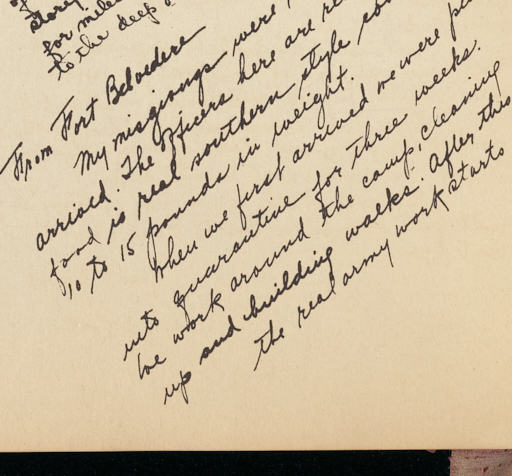 story
for miles
to the deep
From Fort Belvedere
My misgivings were
arrived. The officers here are
food is real southern style
10 to 15 pounds in weight.
When we first arrived we were
into quarantine for three weeks.
We work around the camp, cleaning
up and building walks. After this
the real army work starts